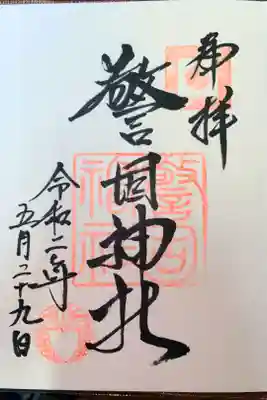 奉拝
警固神社
令和二年
五月二十九日